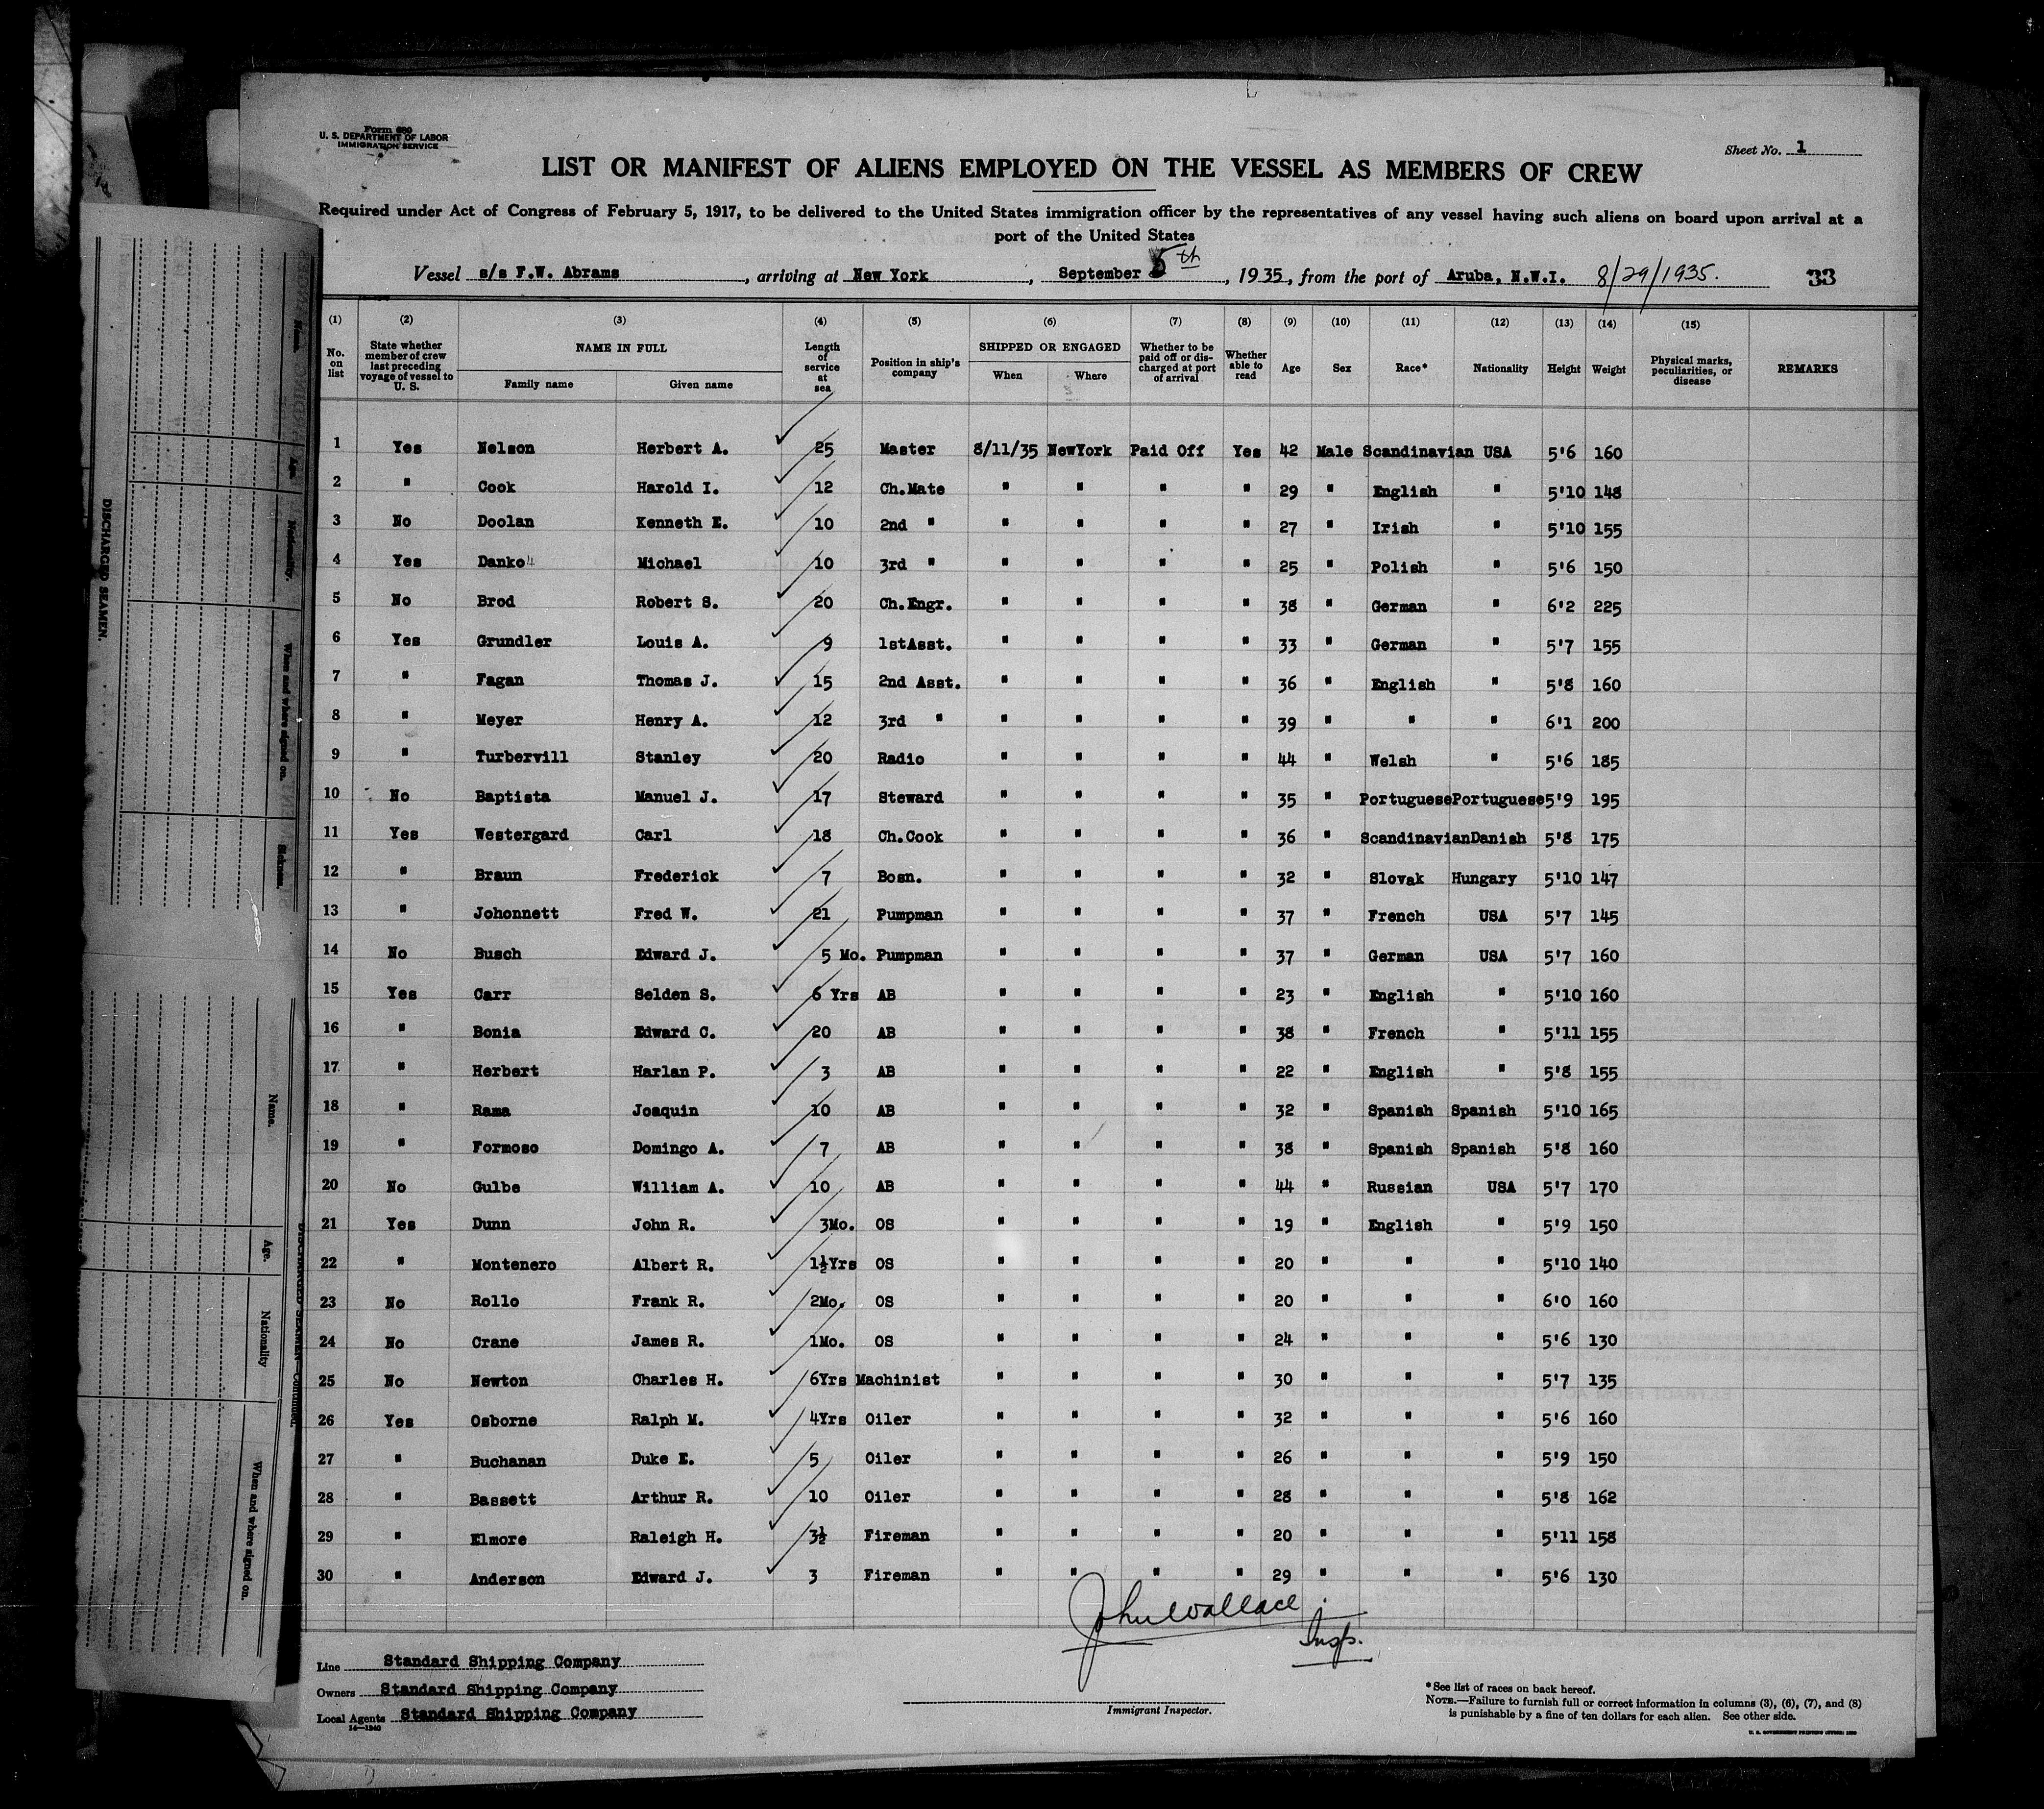 Form 680
U. S. DEPARTMENT OF LABOR
IMMIGRATION SERVICE
Sheet No. 1
LIST OR MANIFEST OF ALIENS EMPLOYED ON THE VESSEL AS MEMBERS OF CREW
Required under Act of Congress of February 5, 1917, to be delivered to the United States immigration officer by the representatives of any vessel having such aliens on board upon arrival at a
port of the United States
Vessel s/s F.W. Abrams, arriving at New York, September 5th, 1935, from the port of Aruba, N.W.I. 8/29/1935. 33
(1) (2) (3) (4) (5) (6) (7) (8) (9) (10) (11) (12) (13) (14) (15)
No. on list State whether member of crew last preceding voyage of vessel to U. S. NAME IN FULL Family name Given name Length of service at sea Position in ship's company SHIPPED OR ENGAGED When Where Whether to be paid off or discharged at port of arrival Whether able to read Age Sex Race* Nationality Height Weight Physical marks, peculiarities, or disease REMARKS
1 Yes Nelson Herbert A. 25 Master 8/11/35 NewYork Paid Off Yes 42 Male Scandinavian USA 5'6 160
2 " Cook Harold I. 12 Ch.Mate " " " " 29 " English " 5'10 148
3 No Doolan Kenneth E. 10 2nd " " " " " 27 " Irish " 5'10 155
4 Yes Danko Michael 10 3rd " " " " " 25 " Polish " 5'6 150
5 No Brod Robert S. 20 Ch.Engr. " " " " 38 " German " 6'2 225
6 Yes Grundler Louis A. 9 1stAsst. " " " " 33 " German " 5'7 155
7 " Fagan Thomas J. 15 2nd Asst. " " " " 36 " English " 5'8 160
8 " Meyer Henry A. 12 3rd " " " " " 39 " " " 6'1 200
9 " Turbervill Stanley 20 Radio " " " " 44 " Welsh " 5'6 185
10 No Baptista Manuel J. 17 Steward " " " " 35 " Portuguese Portuguese 5'9 195
11 Yes Westergard Carl 18 Ch.Cook " " " " 36 " Scandinavian Danish 5'8 175
12 " Braun Frederick 7 Bosn. " " " " 32 " Slovak Hungary 5'10 147
13 " Johonnett Fred W. 21 Pumpman " " " " 37 " French USA 5'7 145
14 No Busch Edward J. 5 Mo. Pumpman " " " " 37 " German USA 5'7 160
15 Yes Carr Selden S. 6 Yrs AB " " " " 23 " English " 5'10 160
16 " Bonia Edward C. 20 AB " " " " 38 " French " 5'11 155
17 " Herbert Harlan P. 3 AB " " " " 22 " English " 5'8 155
18 " Rama Joaquin 10 AB " " " " 32 " Spanish Spanish 5'10 165
19 " Formoso Domingo A. 7 AB " " " " 38 " Spanish Spanish 5'8 160
20 No Gulbe William A. 10 AB " " " " 44 " Russian USA 5'7 170
21 Yes Dunn John R. 3Mo. OS " " " " 19 " English " 5'9 150
22 " Montenero Albert R. 1½Yrs OS " " " " 20 " " " 5'10 140
23 No Rollo Frank R. 2Mo. OS " " " " 20 " " " 6'0 160
24 No Crane James R. 1Mo. OS " " " " 24 " " " 5'6 130
25 No Newton Charles H. 6Yrs Machinist " " " " 30 " " " 5'7 135
26 Yes Osborne Ralph M. 4Yrs Oiler " " " " 32 " " " 5'6 160
27 " Buchanan Duke E. 5 Oiler " " " " 26 " " " 5'9 150
28 " Bassett Arthur R. 10 Oiler " " " " 28 " " " 5'8 162
29 " Elmore Raleigh H. 3½ Fireman " " " " 20 " " " 5'11 158
30 " Anderson Edward J. 3 Fireman " " " " 29 " " " 5'6 130
John Wallace
Insp.
Line Standard Shipping Company
Owners Standard Shipping Company
Local Agents Standard Shipping Company
14—1240
Immigrant Inspector.
* See list of races on back hereof.
NOTE.—Failure to furnish full or correct information in columns (3), (6), (7), and (8)
is punishable by a fine of ten dollars for each alien. See other side.
DISCHARGED SEAMEN.
Name.
Age.
Nationality.
When and where signed on.
Sickness.
DISCHARGED SEAMEN—Continued.
Name.
Age.
Nationality
When and where signed on.